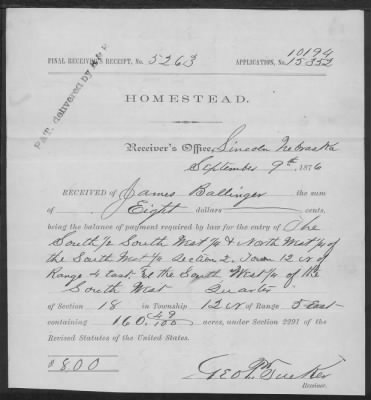 FINAL RECEIVER'S RECEIPT, No. 5263
APPLICATION, No. 10194
15352
Pat. delivered by
HOMESTEAD.
Receiver's Office, Lincoln Nebraska
September 9th, 1876
RECEIVED OF James Ballinger the sum
of Eight dollars cents,
being the balance of payment required by law for the entry of The
South 1/2 South West 1/4 & North West 1/4 of
the South West 1/4 Section 2. Town 12 N of
Range 4 East & the South West 1/4 of the
South West Quarter
of Section 18 in Township 12 N of Range 5 East
containing 160 49/100 acres, under Section 2291 of the
Revised Statutes of the United States.
$ 8.00
Geo. P. Tucker
Receiver.